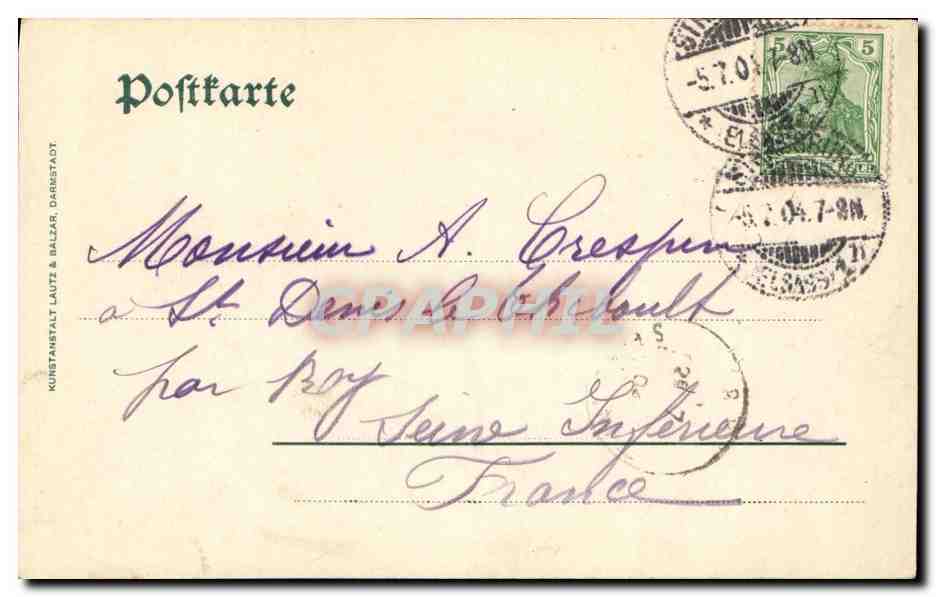 Postkarte
5 5
-5.7.04.7-8N
* ELSASS
-5.7.04.7-8N.
ELSASS)
Monsieur A. Crespin
à St. Denis le Thiboult
par Roy
Seine Inférieure
France
KUNSTANSTALT LAUTZ & BALZAR, DARMSTADT.
CPAPHIL